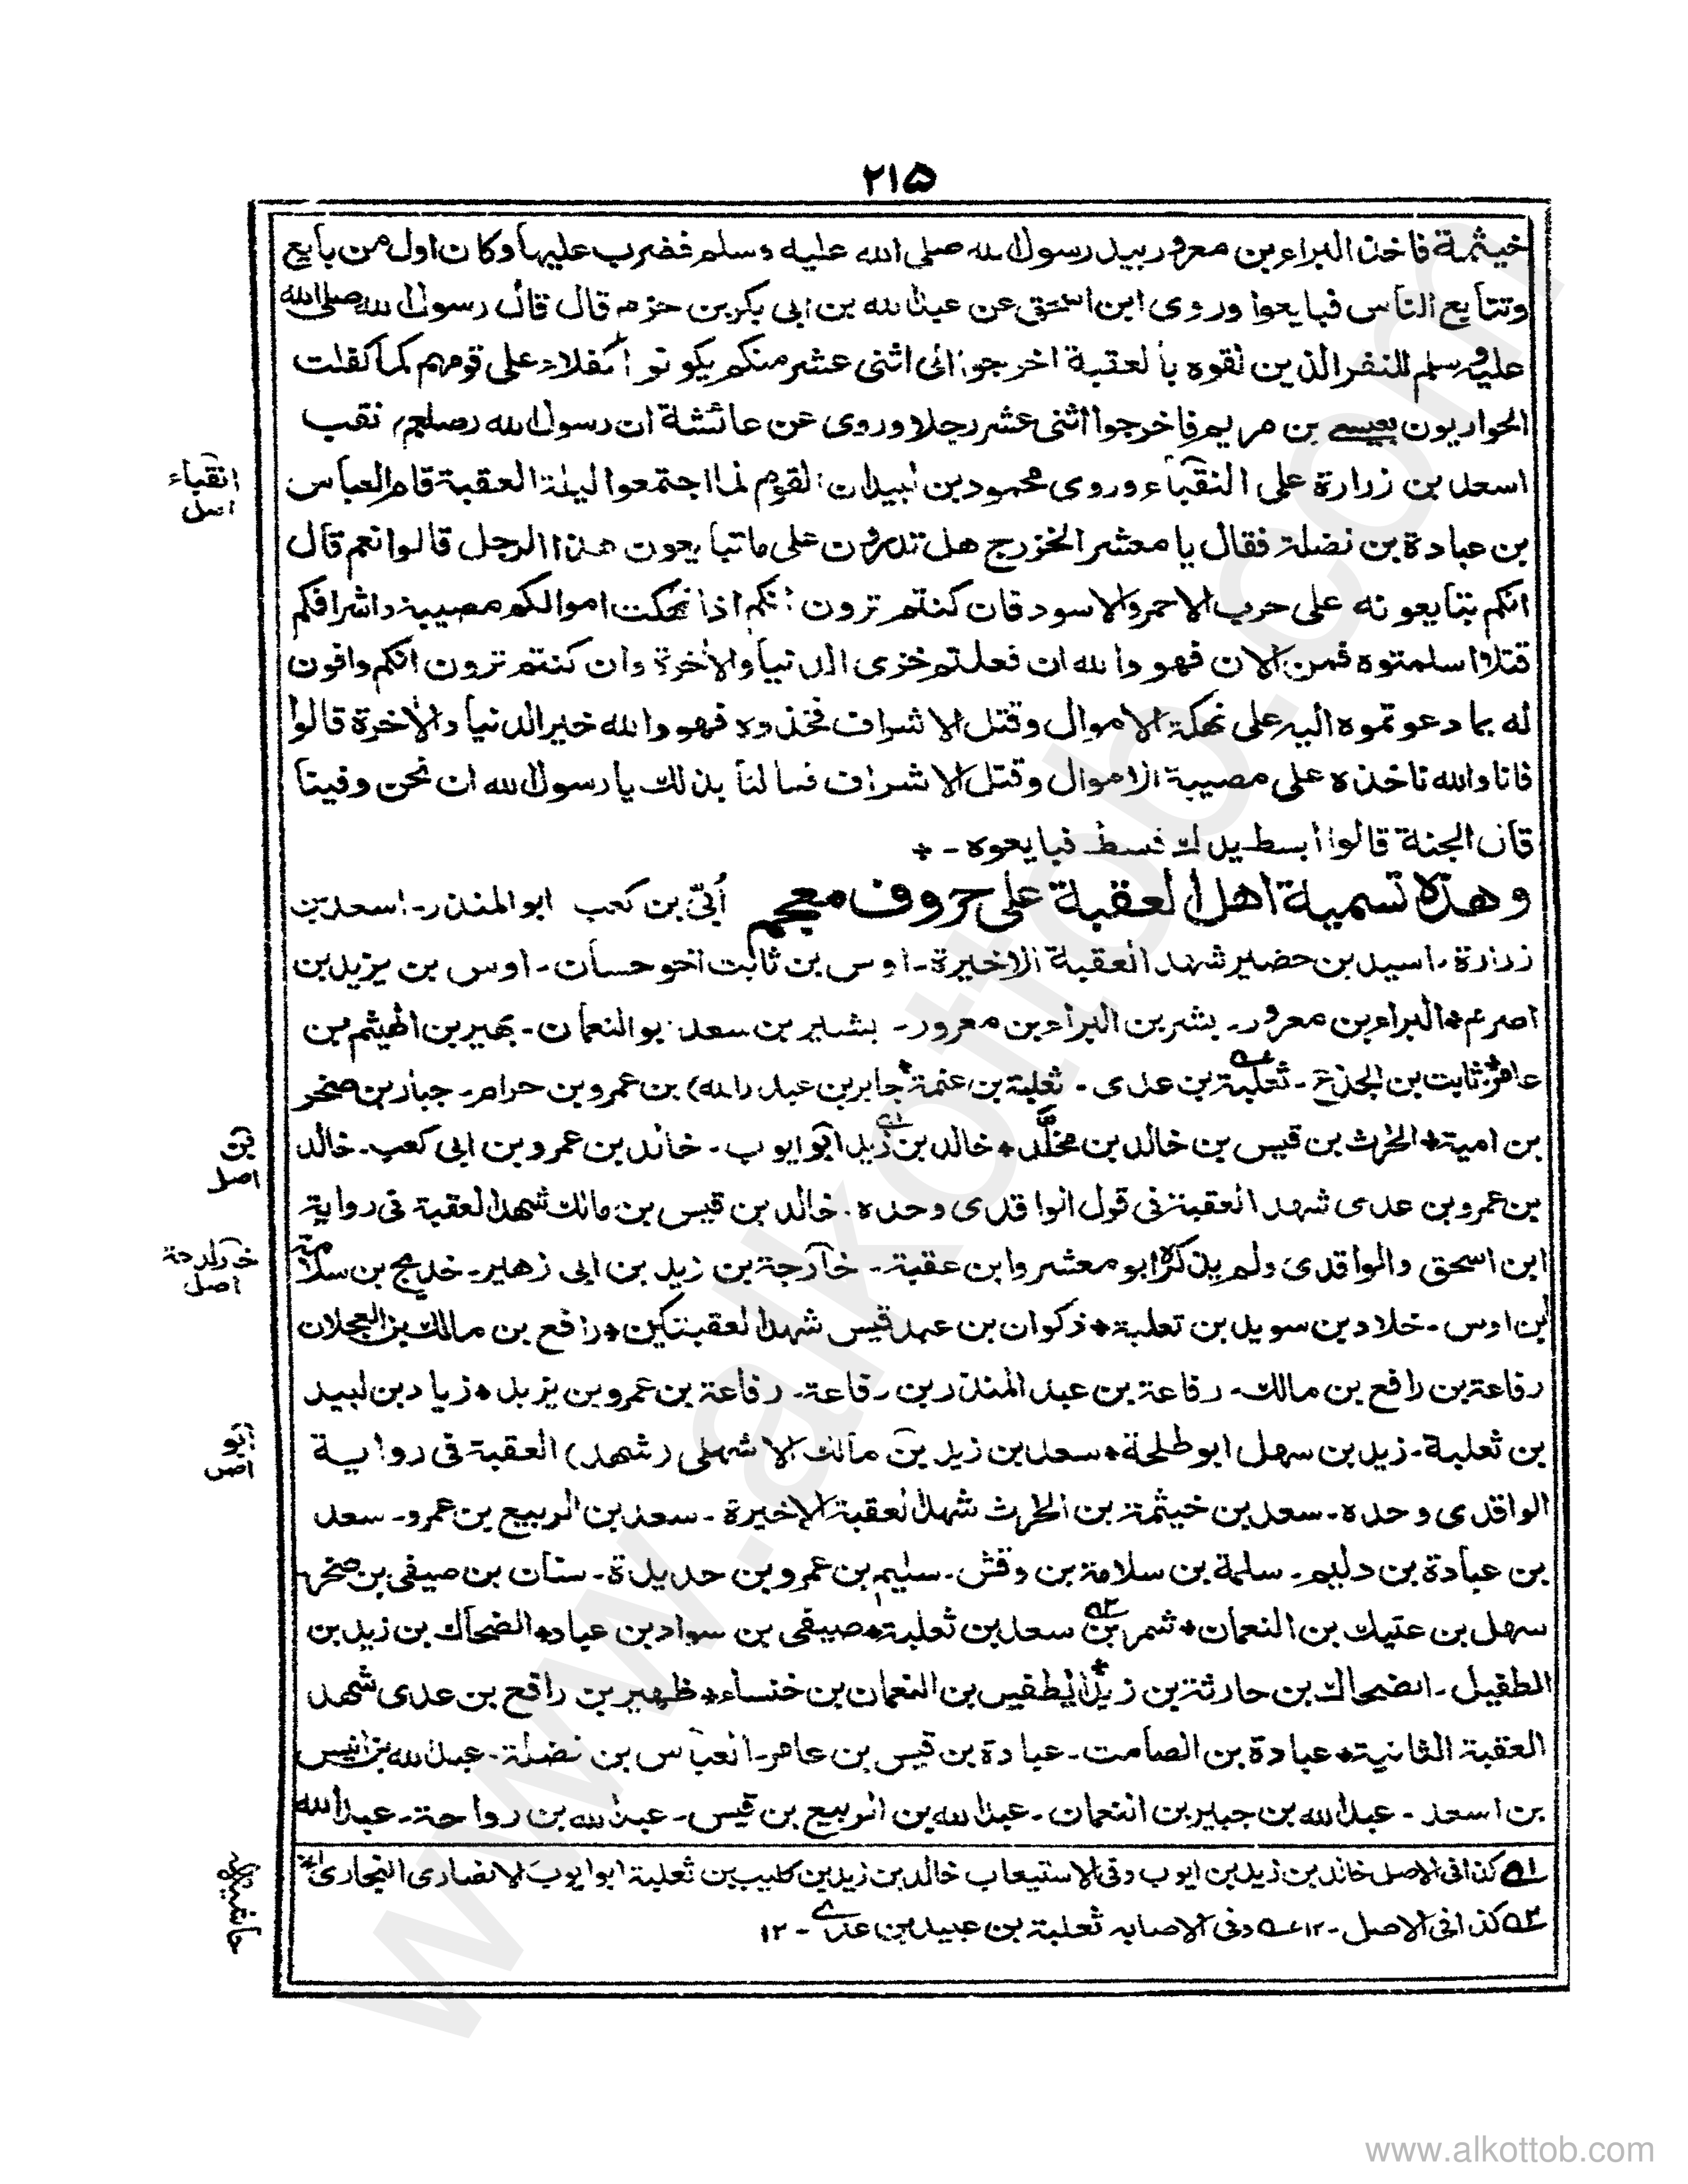 ٢١٥
خيثمة فاخذ البراء بن معرور بيد رسول الله صلى الله عليه وسلم فضرب عليها وكان اول من بايع
وتتابع الناس فبايعوا وروى ابن اسحق عن عبد الله بن ابى بكر بن حزم قال قال رسول الله صلى الله
عليه وسلم للنفر الذين لقوه بالعقبة اخرجوا الى اثنى عشر منكم يكونوا كفلاء على قومهم كما كفلت
الحواريون بعيسى بن مريم فاخرجوا اثنى عشر رجلا وروى عن عائشة ان رسول الله (صلعم) نقب
اسعد بن زرارة على النقباء وروى محمود بن لبيد ان القوم لما اجتمعوا ليلة العقبة قام العباس
بن عبادة بن نضلة فقال يا معشر الخزرج هل تدرون على ما تبايعون هذا الرجل قالوا نعم قال
انكم تبايعونه على حرب الاحمر والاسود فان كنتم ترون انكم اذا نهكت اموالكم مصيبة واشرافكم
قتلا اسلمتوه فمن الان فهو والله ان فعلتم خزى الدنيا والاخرة وان كنتم ترون انكم وافون
له بما دعوتموه اليه على نهكة الاموال وقتل الاشراف فخذوه فهو والله خير الدنيا والاخرة قالوا
فانا والله ناخذه على مصيبة الاموال وقتل الاشراف فما لنا بذلك يا رسول الله ان نحن وفينا
قال الجنة قالوا ابسط يدك فبسط فبايعوه - *
وهذه تسمية اهل العقبة على حروف معجم أبىّ بن كعب ابو المنذر- اسعد بن
زرارة- اسيد بن حضير شهد العقبة الاخيرة- اوس بن ثابت اخو حسان- اوس بن يزيد بن
اصرم* البراء بن معرور- بشر بن البراء بن معرور- بشير بن سعد ابو النعمان- بهير بن الهيثم بن
عامر* ثابت بن الجذع- ثعلبة بن عدى- ثعلبة بن عنمة* جابر بن عبد (الله) بن عمرو بن حرام- جبار بن صخر
بن امية* الحٰرث بن قيس بن خالد بن مخلّد* خالد بن زيد ابو ايوب- خالد بن عمرو بن ابى كعب- خالد
بن عمرو بن عدى شهد العقبة فى قول الواقدى وحده- خالد بن قيس بن مالك شهد العقبة فى رواية
ابن اسحق والواقدى ولم يذكره ابو معشر وابن عقبة- خارجة بن زيد بن ابى زهير- خديج بن سلامة
بن اوس- خلاد بن سويد بن ثعلبة* ذكوان بن عبد قيس شهد العقبتين* رافع بن مالك بن العجلان
رفاعة بن رافع بن مالك- رفاعة بن عبد المنذر بن رفاعة- رفاعة بن عمرو بن يزيد* زياد بن لبيد
بن ثعلبة- زيد بن سهل ابو طلحة* سعد بن زيد بن مالك الاشهلى (شهد) العقبة فى رواية
الواقدى وحده- سعد بن خيثمة بن الحٰرث شهد العقبة الاخيرة- سعد بن الربيع بن عمرو- سعد
بن عبادة بن دليم- سلمة بن سلامة بن وقش- سليم بن عمرو بن حديدة- سنان بن صيفى بن صخر
سهل بن عتيك بن النعمان* شمر بن سعد بن ثعلبة* صيفى بن سواد بن عباد* الضحاك بن زيد بن
الطفيل- الضحاك بن حارثة بن زيد* الطفيل بن النعمان بن خنساء* ظهير بن رافع بن عدى شهد
العقبة الثانية* عبادة بن الصامت- عبادة بن قيس بن عامر- العباس بن نضلة- عبد الله بن انيس
بن اسعد- عبد الله بن جبير بن النعمان- عبد الله بن الربيع بن قيس- عبد الله بن رواحة- عبد الله
انقباء
اصل
بن
اصل
اصل
ابو
اصل
حاشيه
١ كذا فى الاصل خالد بن زيد بن ايوب وفى الاستيعاب خالد بن زيد بن كليب بن ثعلبة ابو ايوب الانصارى النجارى
٢ كذا فى الاصل- ١٢ وفى الاصابه ثعلبة بن عبيد بن عدى - ١٢
www.alkottob.com
www.alkottob.com